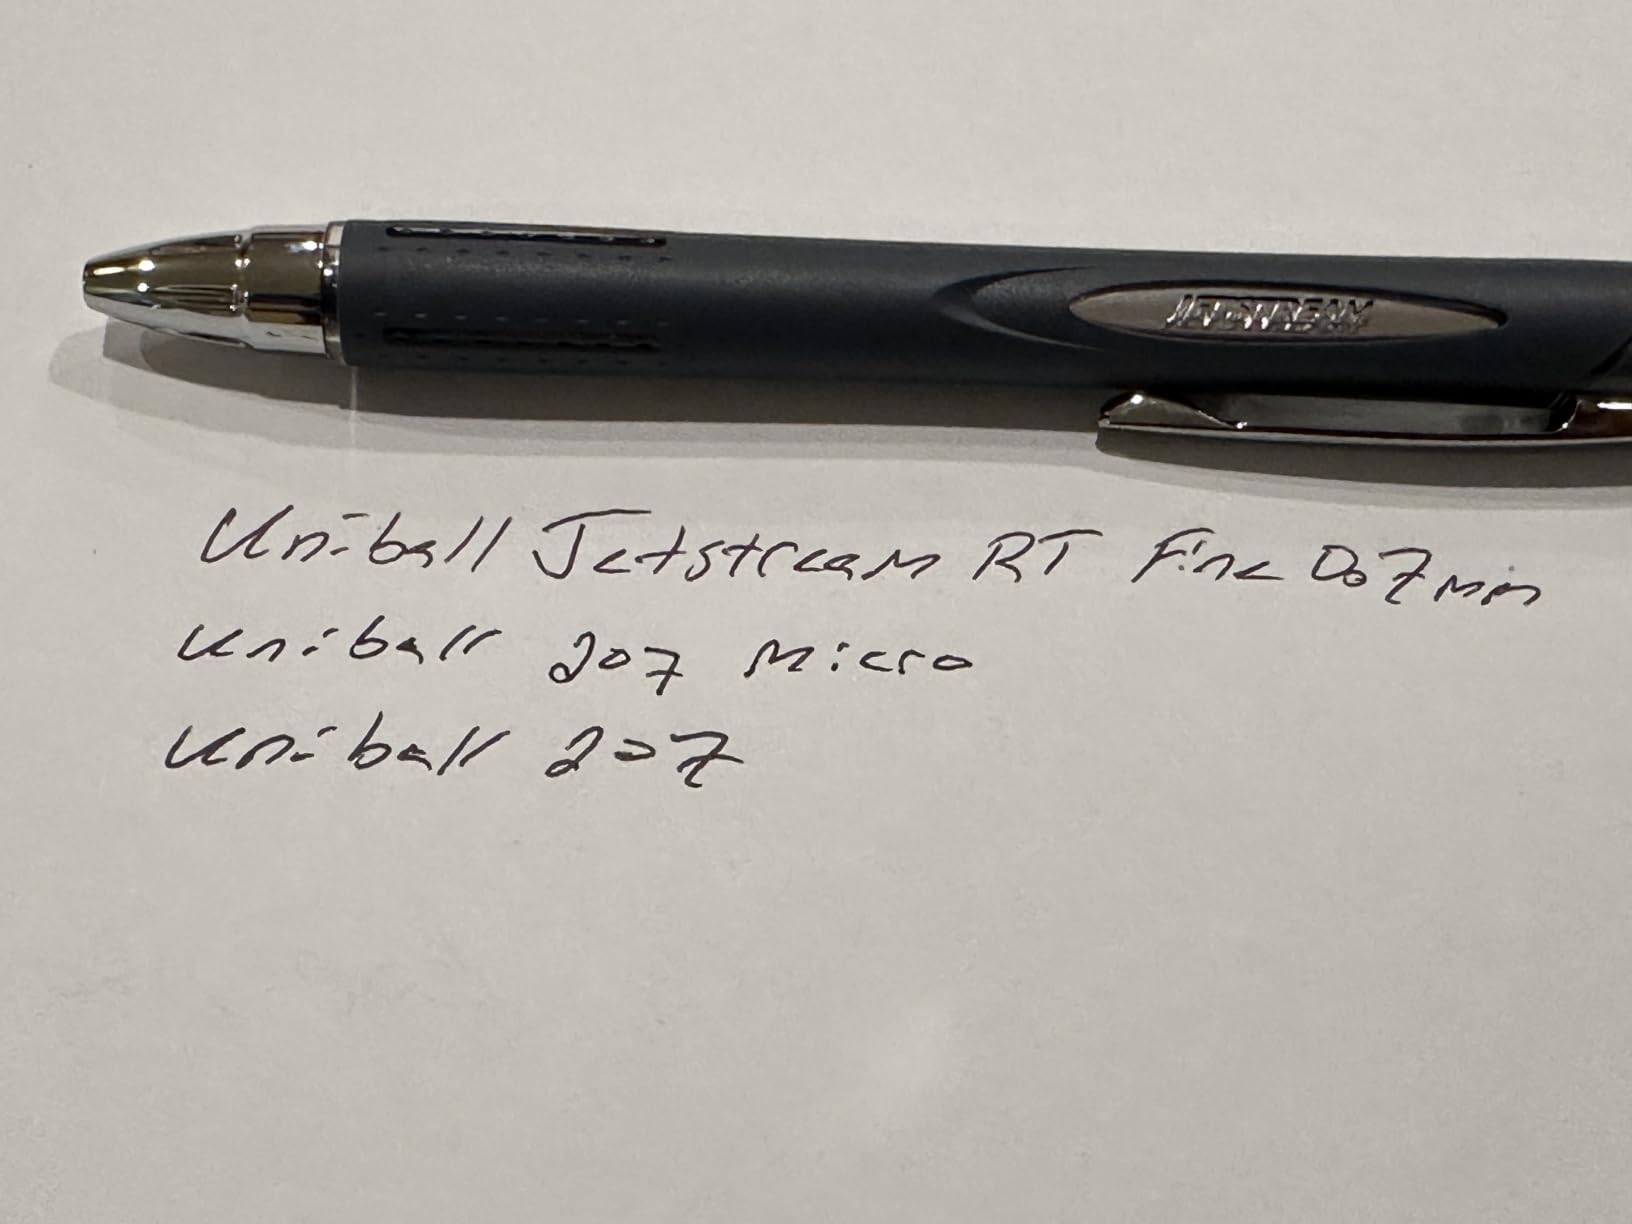 JETSTREAM
Uniball Jetstream RT Fine 0.7mm
Uniball 207 Micro
Uniball 207